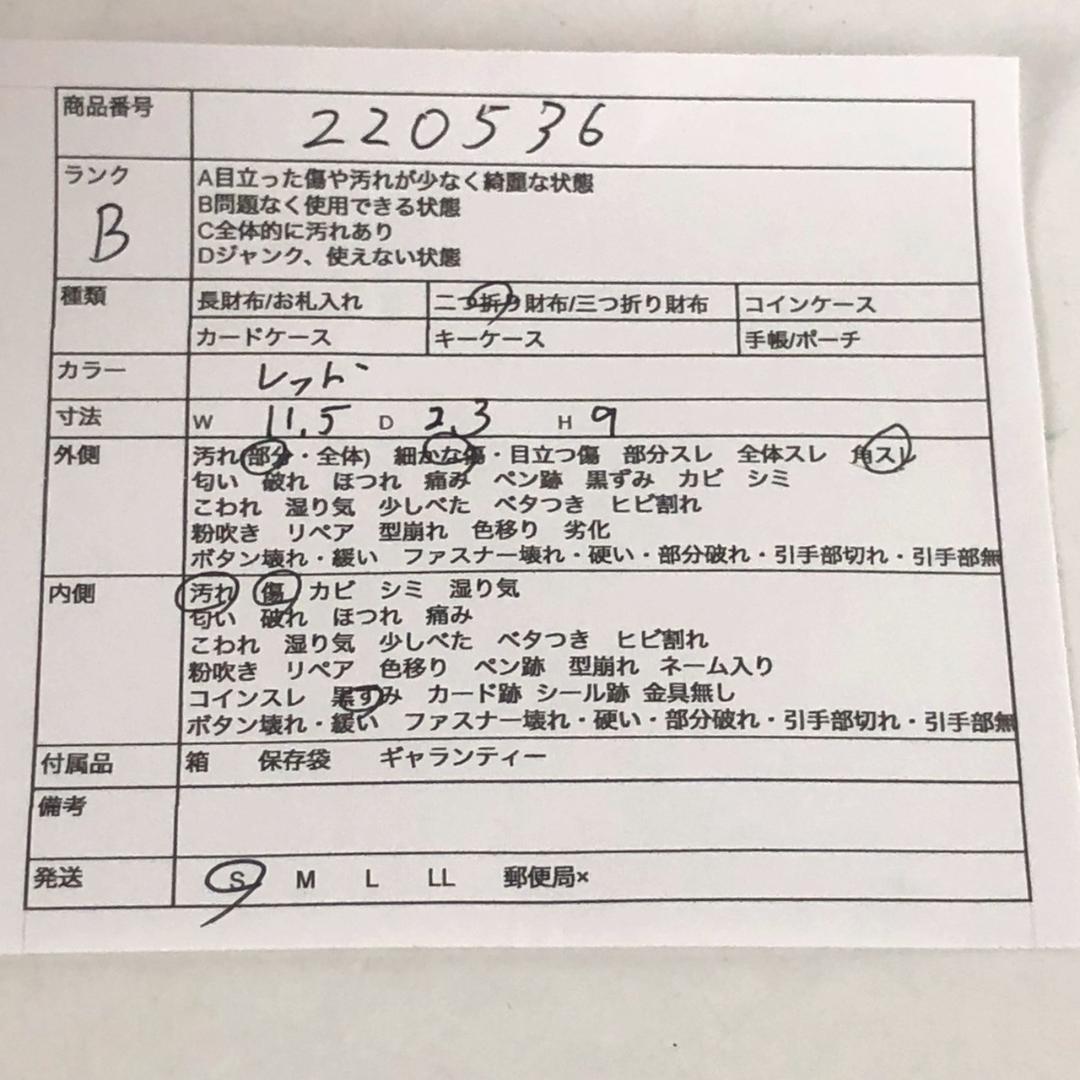 商品番号 220536
ランク B
A目立った傷や汚れが少なく綺麗な状態
B問題なく使用できる状態
C全体的に汚れあり
Dジャンク、使えない状態
種類 長財布/お札入れ 二つ折り財布/三つ折り財布 コインケース
カードケース キーケース 手帳/ポーチ
カラー レッド
寸法 W 11,5 D 2,3 H 9
外側 汚れ(部分・全体) 細かな傷・目立つ傷 部分スレ 全体スレ 角スレ
匂い 破れ ほつれ 痛み ペン跡 黒ずみ カビ シミ
こわれ 湿り気 少しべた ベタつき ヒビ割れ
粉吹き リペア 型崩れ 色移り 劣化
ボタン壊れ・緩い ファスナー壊れ・硬い・部分破れ・引手部切れ・引手部無
内側 汚れ 傷 カビ シミ 湿り気
匂い 破れ ほつれ 痛み
こわれ 湿り気 少しべた ベタつき ヒビ割れ
粉吹き リペア 色移り ペン跡 型崩れ ネーム入り
コインスレ 黒ずみ カード跡 シール跡 金具無し
ボタン壊れ・緩い ファスナー壊れ・硬い・部分破れ・引手部切れ・引手部無
付属品 箱 保存袋 ギャランティー
備考
発送 S M L LL 郵便局×